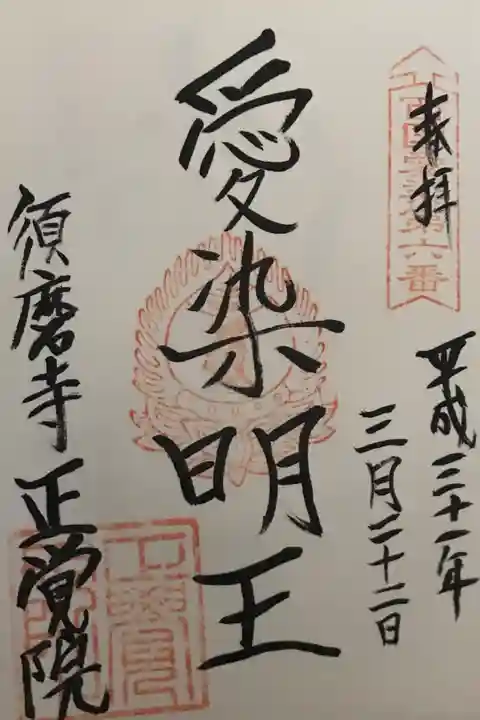 奉拝
平成三十一年
三月二十二日
愛染明王
須磨寺 正覚院